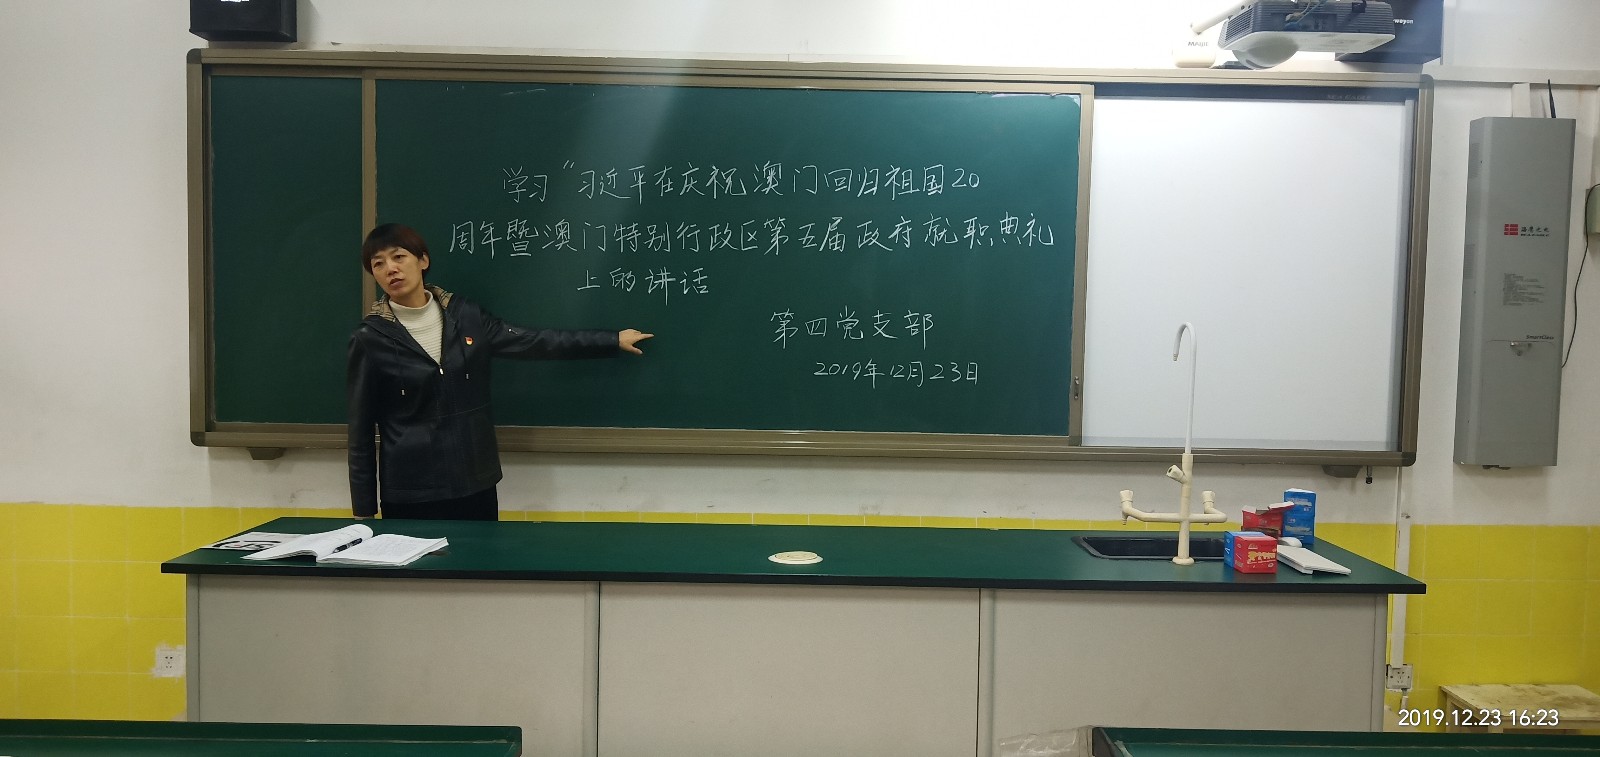 学习“习近平在庆祝澳门回归祖国20
周年暨澳门特别行政区第五届政府就职典礼
上的讲话
第四党支部
2019年12月23日
2019.12.23 16:23